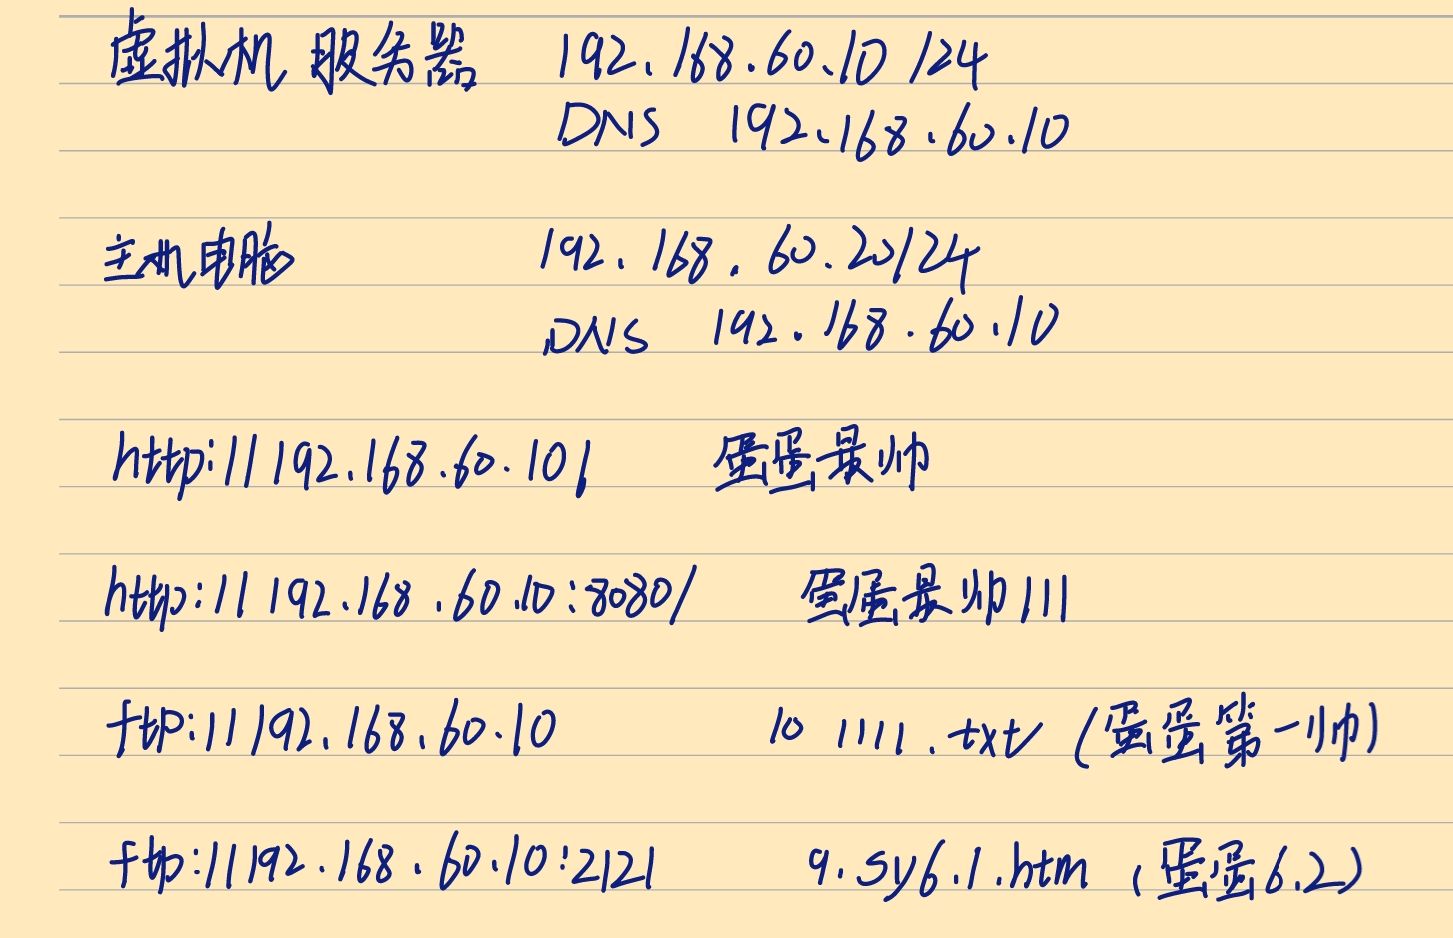 虚拟机 服务器 192.168.60.10/24
DNS 192.168.60.10
主机电脑 192.168.60.20/24
DNS 192.168.60.10
http://192.168.60.10/ 蛋蛋最帅
http://192.168.60.10:8080/ 蛋蛋最帅111
ftp://192.168.60.10 10 1111.txt (蛋蛋第一帅)
ftp://192.168.60.10:2121 9.sy6.1.htm (蛋蛋6.2)